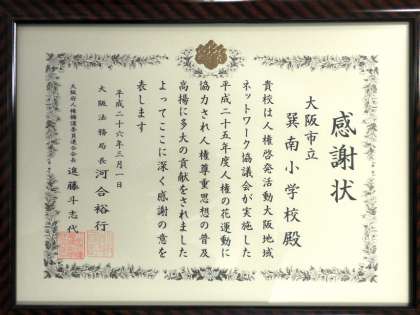 感謝状
大阪市立
巽南小学校殿
貴校は人権啓発活動大阪地域
ネットワーク協議会が実施した
平成二十五年度人権の花運動に
協力され人権尊重思想の普及
高揚に多大の貢献をされました
よってここに深く感謝の意を
表します
平成二十六年三月一日
大阪法務局長 河合裕行
大阪府人権擁護委員連合会長 進藤斗志代